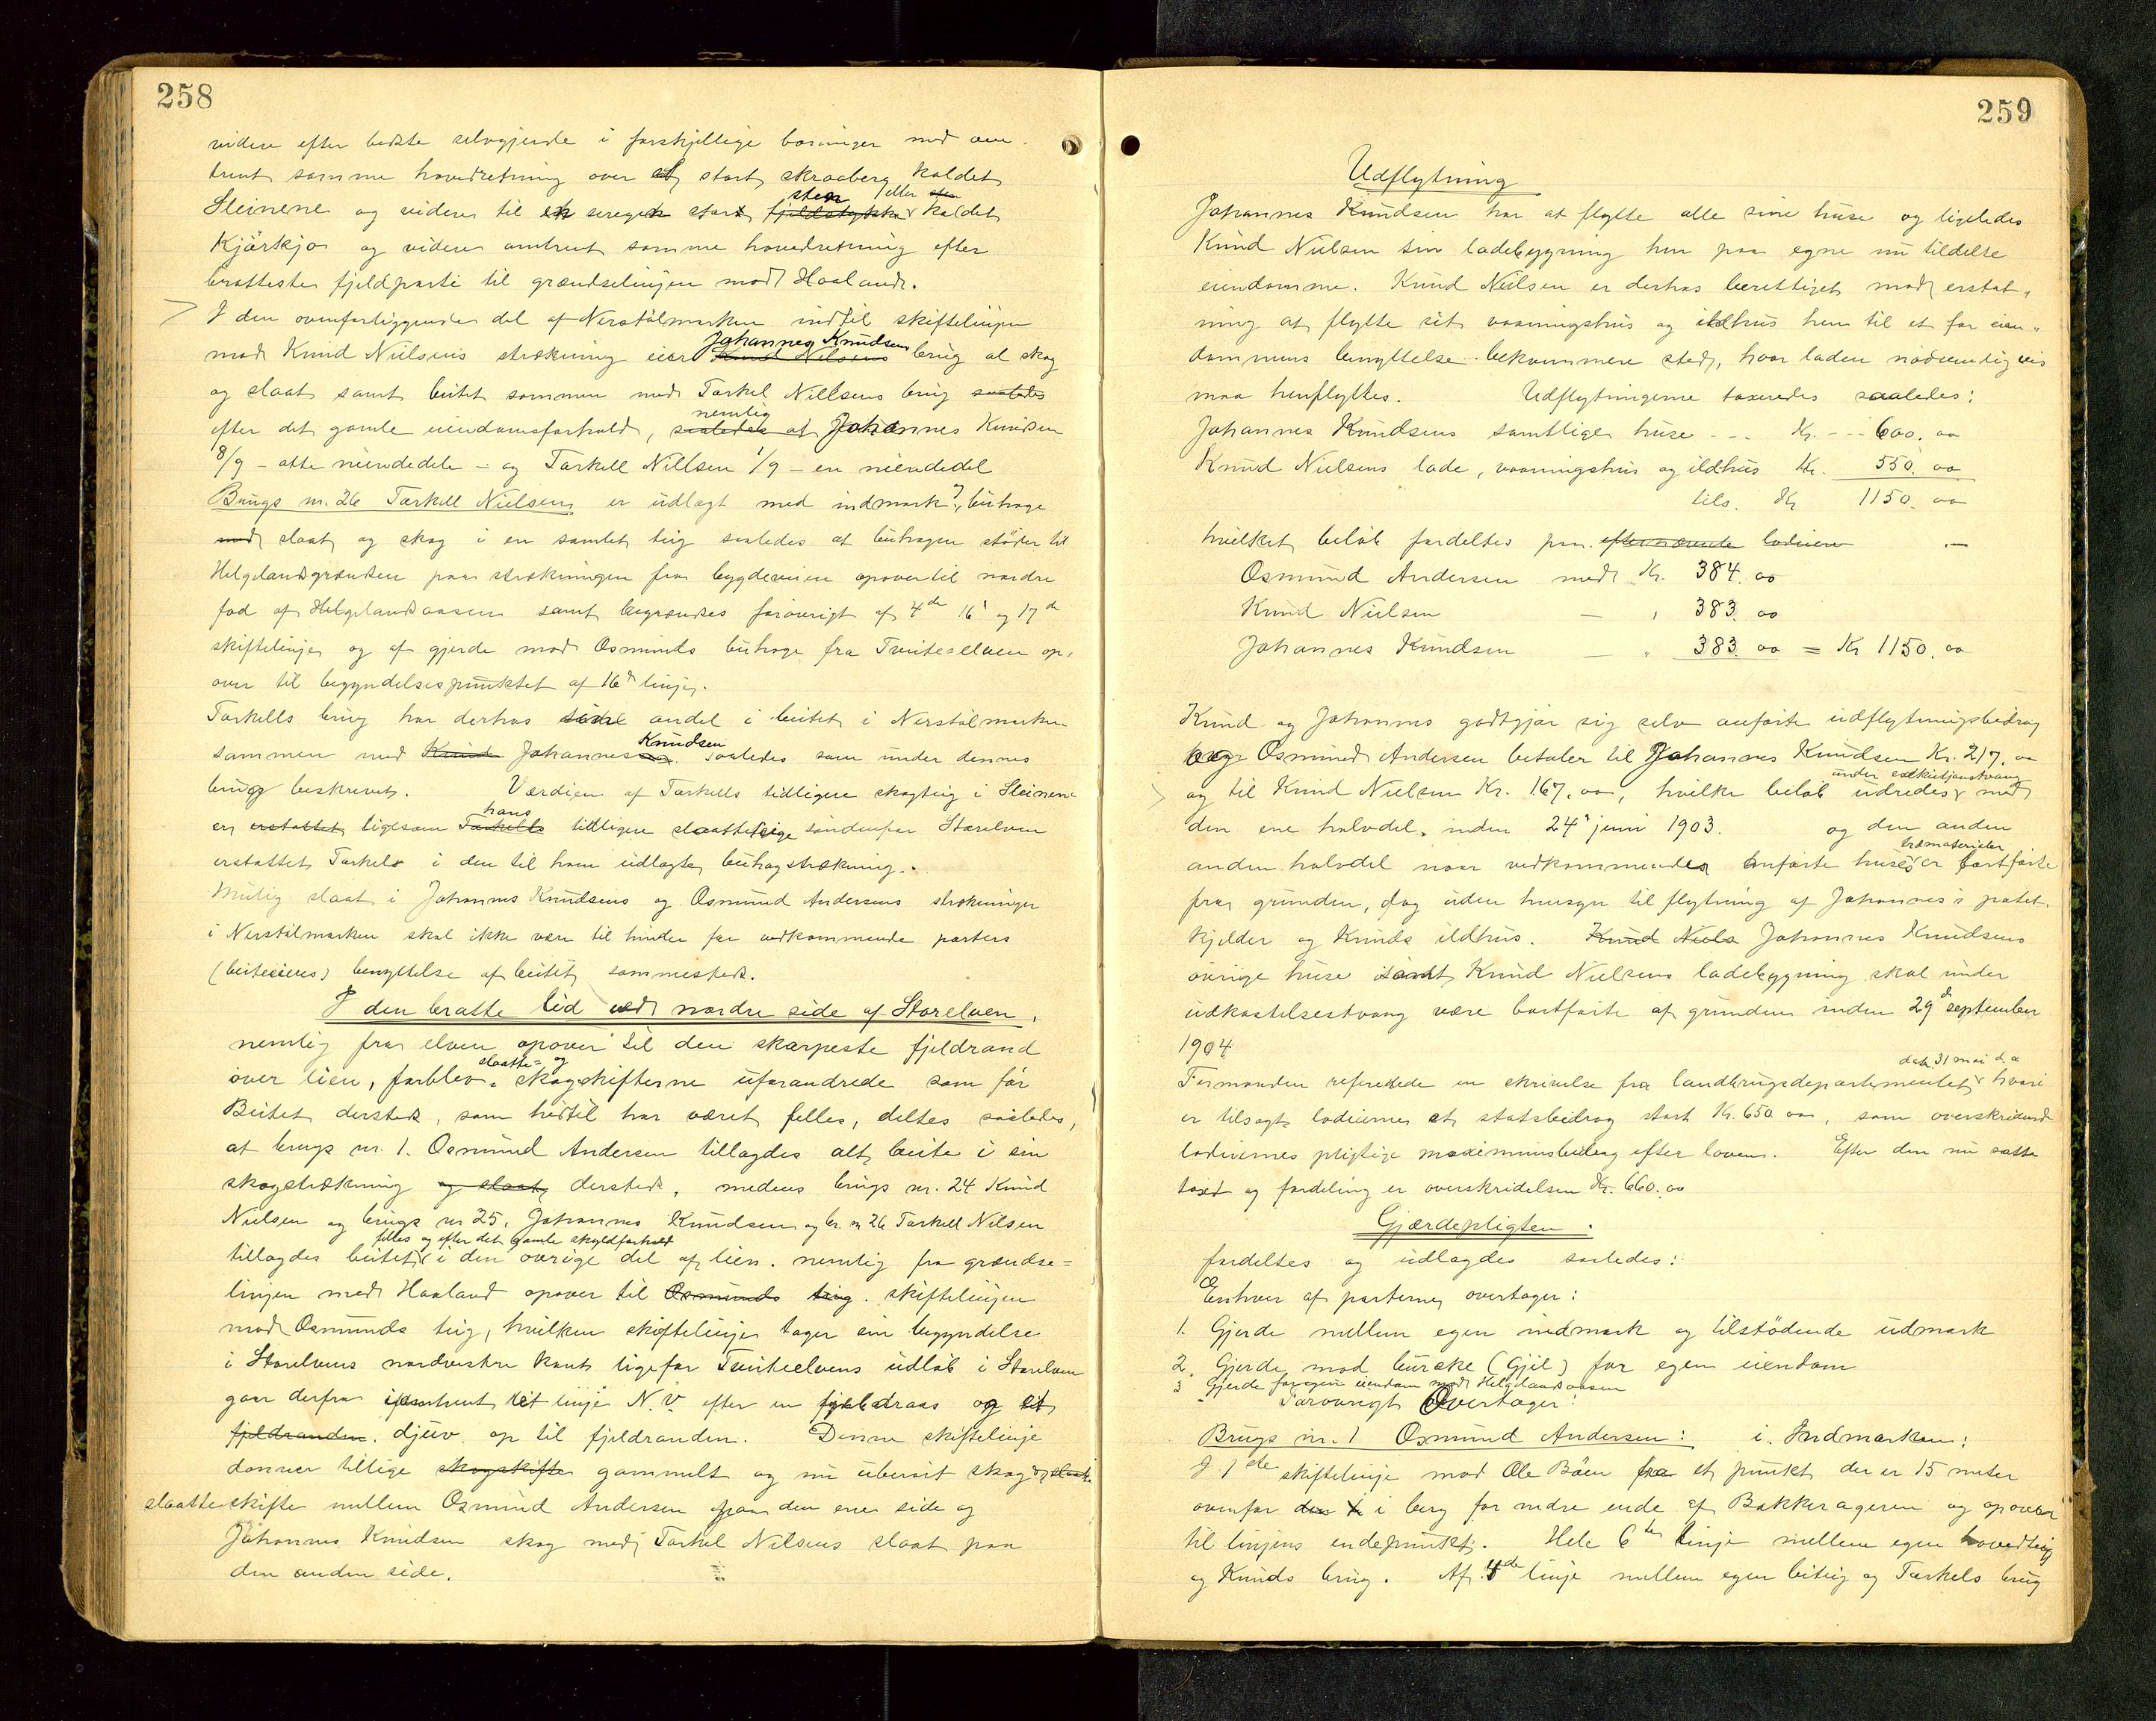 258
videre efter bedste selvgjerde i forskjellige bøininger med om-
trent samme hovedretning over et stort skraaberg kaldet
Sleinene og videre til en svægen stor fjeldstykke sten eller kaldet
Kjörkjo og videre omtrent samme hovedretning efter
bratteste fjeldparti til grændselinjen mod Haaland.
I den ovenforliggende del af Nerstölmarken indtil skiftelinjen
mod Knud Nielsens strækning eier Knud Nilsens Johannes Knudsens brug al skog
og slaat samt beitet sammen med Tarkel Nillsens brug saaledes
efter det gamle eiendomsforhold, saaledes at nemlig Johannes Knudsen
8/9 - otte niendedele - og Tarkell Nillsen 1/9 - en niendedel
Brugs nr. 26 Tarkell Nielsens er udlagt med indmark, buhage
med slaat og skog i en samlet teig saaledes at buhagen stöder til
Helgelandsgrændsen paa strækningen fra bygdeveien opover til nordre
fod af Helgelandsaasen samt begrændses forövrigt af 4de 16d og 17de
skiftelinje og af gjerde mod Osmunds buhage fra Tveiteelven op-
over til begyndelsespunktet af 16d linje.
Tarkells brug har derhos sidel andel i beitet i Nerstölmarken
sammen med Knude Johannes Knudsen saaledes som under dennes
brug beskrevet. Værdien af Tarkells tidligere skogteig i Sleinene
er erstattet ligesom Tarkells hans tidligere slaatteteige söndenfor Storelven
erstattet Tarkel i den til ham udlagte buhagstrækning.
Mulig slaat i Johannes Knudsens og Osmund Andersens strækninger
i Nerstölmarken skal ikke være til hinder for vedkommende parters
(beiteeieres) benyttelse af beitet sammesteds.
I den bratte lid ved nordre side af Storelven,
nemlig fra elven opover til den skarpeste fjeldrand
over lien, forblev slaatte- og skogskifterne uforandrede som för
Beitet dersteds, som hidtil har været fælles, deltes saaledes,
at brugs nr. 1. Osmund Andersen tillagdes alt beite i sin
skogstrækning og slaat dersteds, medens brugs nr. 24 Knud
Nielsen og brugs nr 25. Johannes Knudsen og br. n 26 Tarkell Nilsen
tillagdes beitet fælles og efter det gamle skyldforhold i den övrige del af lien. nemlig fra grændse-
linjen med Haaland opover til Osmunds teig. skiftelinjen
mod Osmunds teig, hvilken skiftelinje tager sin begyndelse
i Storelvens nordvestre kant ligefor Tveiteelvens udlöb i Storelven
gaar derfra omtrent ret linje N.V. efter en fjelldraas og et
fjeldranden. djuv op til fjeldranden. Denne skiftelinje
danner tillige skogskifte gammelt og nu ubereit skog og slaatte
slaatteskifte mellem Osmund Andersen paa den ene side og
Johannes Knudsen skog med Tarkel Nilsens slaat paa
den anden side.
259
Udflytning
Johannes Knudsen har at flytte alle sine huse og ligeledes
Knud Nielsen sin ladebygning hen paa egne nu tildelte
eiendomme. Knud Nielsen er derhos berettiget mod erstat-
ning at flytte sit vaaningshus og ildhus hen til et for eien-
dommens benyttelse bekvemmere sted, hvor laden nödvendigvis
maa henflyttes. Udflytningerne taxeredes saaledes:
Johannes Knudsens samtlige huse - - - Kr. - - 600. oo
Knud Nielsens lade, vaaningshus og ildhus Kr. 550. oo
tils. Kr 1150. oo
hvilket belöb fordeltes paa efternævnte lodeiere
Osmund Andersen med Kr. 384. oo
Knud Nielsen — " 383. oo
Johannes Knudsen — " 383. oo = Kr 1150. oo
Knud og Johannes godtgjör sig selv anförte udflytningsbidrag
og Osmund Andersen betaler til Johannes Knudsen Kr. 217. oo
og til Knud Nielsen Kr. 167. oo, hvilke belöb udredes under exekutjonstvang med
den ene halvdel inden 24d juni 1903. og den anden
anden halvdel naar vedkommendes anförte huses træmaterialer er bortförte
fra grunden, dog uden hensyn til flytning af Johannes's potet-
kjelder og Knuds ildhus. Knud Niels Johannes Knudsens
övrige huse samt Knud Nielsens ladebygning skal under
udkastelsestvang være bortförte af grunden inden 29d september
1904
Formanden refererede en skrivelse fra landbrugsdepartementet dat. 31 mai d.a hvori
er tilsagt lodeierne et statsbidrag stort Kr. 650 oo, som overskridende
lodeiernes pligtige maximumsbidrag efter loven. Efter den nu satte
taxt og fordeling er overskridelsen Kr. 660. oo
Gjærdepligten.
fordeltes og udlagdes saaledes:
Enhver af parterne overtager:
1. Gjerde mellem egen indmark og tilstödende udmark
2. Gjerde mod buræke (Gjil) for egen eiendom
3 Gjerde for egen eiendom mod Helgelandsaasen
Forövrigt Overtager:
Brugs nr. 1 Osmund Andersen: i Indmarken:
I 1ste skiftelinje mod Ole Böen fra et punkt der er 15 meter
ovenfor den X i berg for nedre ende af Bakkeageren og opover
til linjens endepunkt. Hele 6te linje mellem egen hovedteig
og Knuds brug. Af 4de linje mellem egen beiteig og Tarkels brug